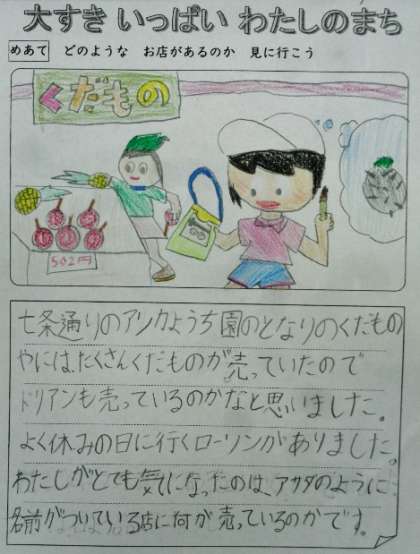 大すき いっぱい わたしのまち
めあて どのような お店があるのか 見に行こう
くだもの
502円
七条通りのアソカようち園のとなりのくだもの
やには、たくさんくだものが売っていたので
ドリアンも売っているのかなと思いました。
よく休みの日に行くローソンがありました。
わたしがとても気になったのは、アサダのように
名前がついている店に何が売っているのかです。